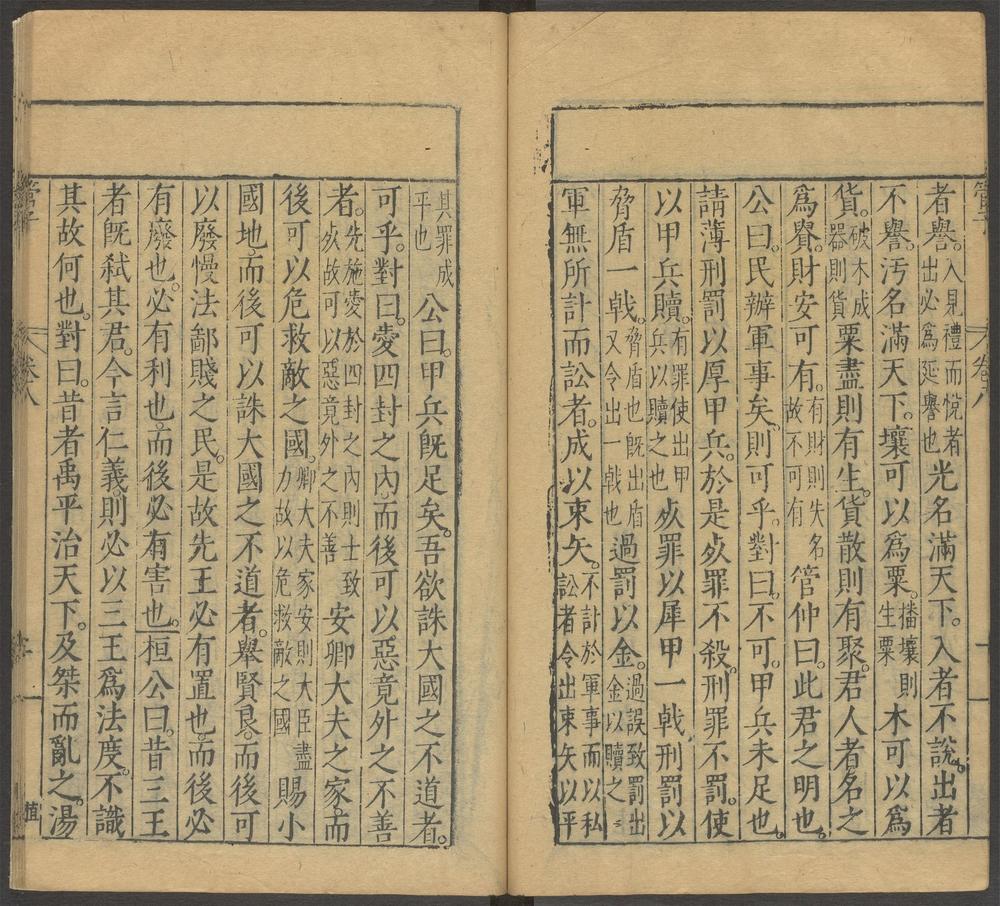 管子
卷八
十一
者譽。入見禮而悅者出必爲延譽也光名滿天下。入者不說。出者
不譽。汚名滿天下。壤可以爲粟。播壤則生粟木可以爲
貨。破木成器則貨粟盡則有生。貨散則有聚。君人者名之
爲貴。財安可有。有財則失名故不可有管仲曰。此君之明也。
公曰。民辦軍事矣。則可乎。對曰。不可。甲兵未足也。
請薄刑罰以厚甲兵。於是死罪不殺。刑罪不罰。使
以甲兵贖。有罪使出甲兵以贖之也死罪以犀甲一戟刑罰以
脅盾一戟。脅盾也旣出盾又令出一戟也過罰以金。過誤致罰出金以贖之
軍無所計而訟者。成以束矢。不計於軍事而以私訟者令出束矢以平
其罪成平也公曰。甲兵旣足矣。吾欲誅大國之不道者。
可乎。對曰。愛四封之內。而後可以惡竟外之不善
者。先施愛於四封之內則士致死故可以惡竟外之不善安卿大夫之家。而
後可以危救敵之國。卿大夫家安則大臣盡力故以危救敵之國賜小
國地。而後可以誅大國之不道者。舉賢良。而後可
以廢慢法鄙賤之民。是故先王必有置也。而後必
有廢也。必有利也。而後必有害也。桓公曰。昔三王
者旣弑其君。今言仁義。則必以三王爲法度。不識
其故何也。對曰。昔者禹平治天下。及桀而亂之。湯
管子
卷八
植